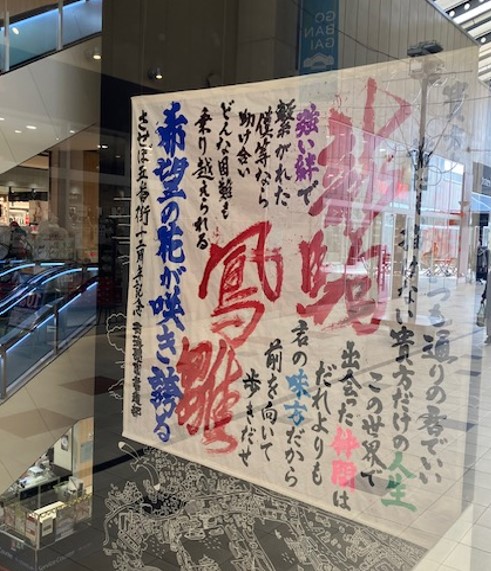 GO
BAN
GAI
つも通りの君でいい
ない貴方だけの人生
この世界で
出会った仲間は
だれよりも
君の味方だから
前を向いて
歩きだせ
龍駒
鳳雛
強い絆で
繋がれた
僕等なら
助け合い
どんな困難も
乗り越えられる
希望の花が咲き誇る
させぼ五番街 十二周年記念